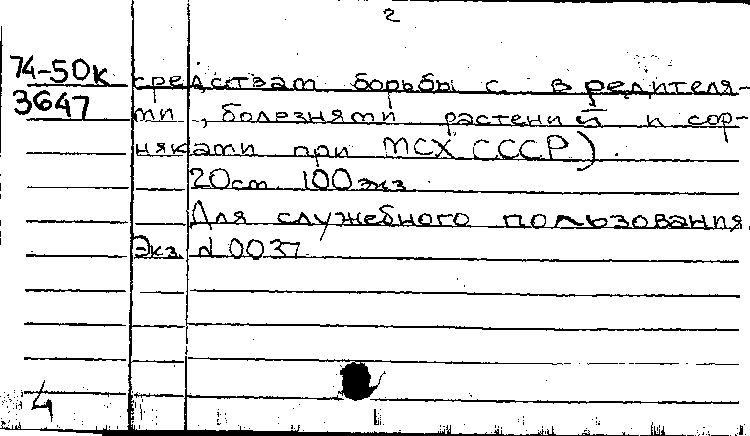 2
74-50к средствам борьбы с вредителя-
3647 ми, болезнями растений и сор-
няками при МСХ СССР).
20см 100экз.
Для служебного пользования.
Экз. № 0037
4